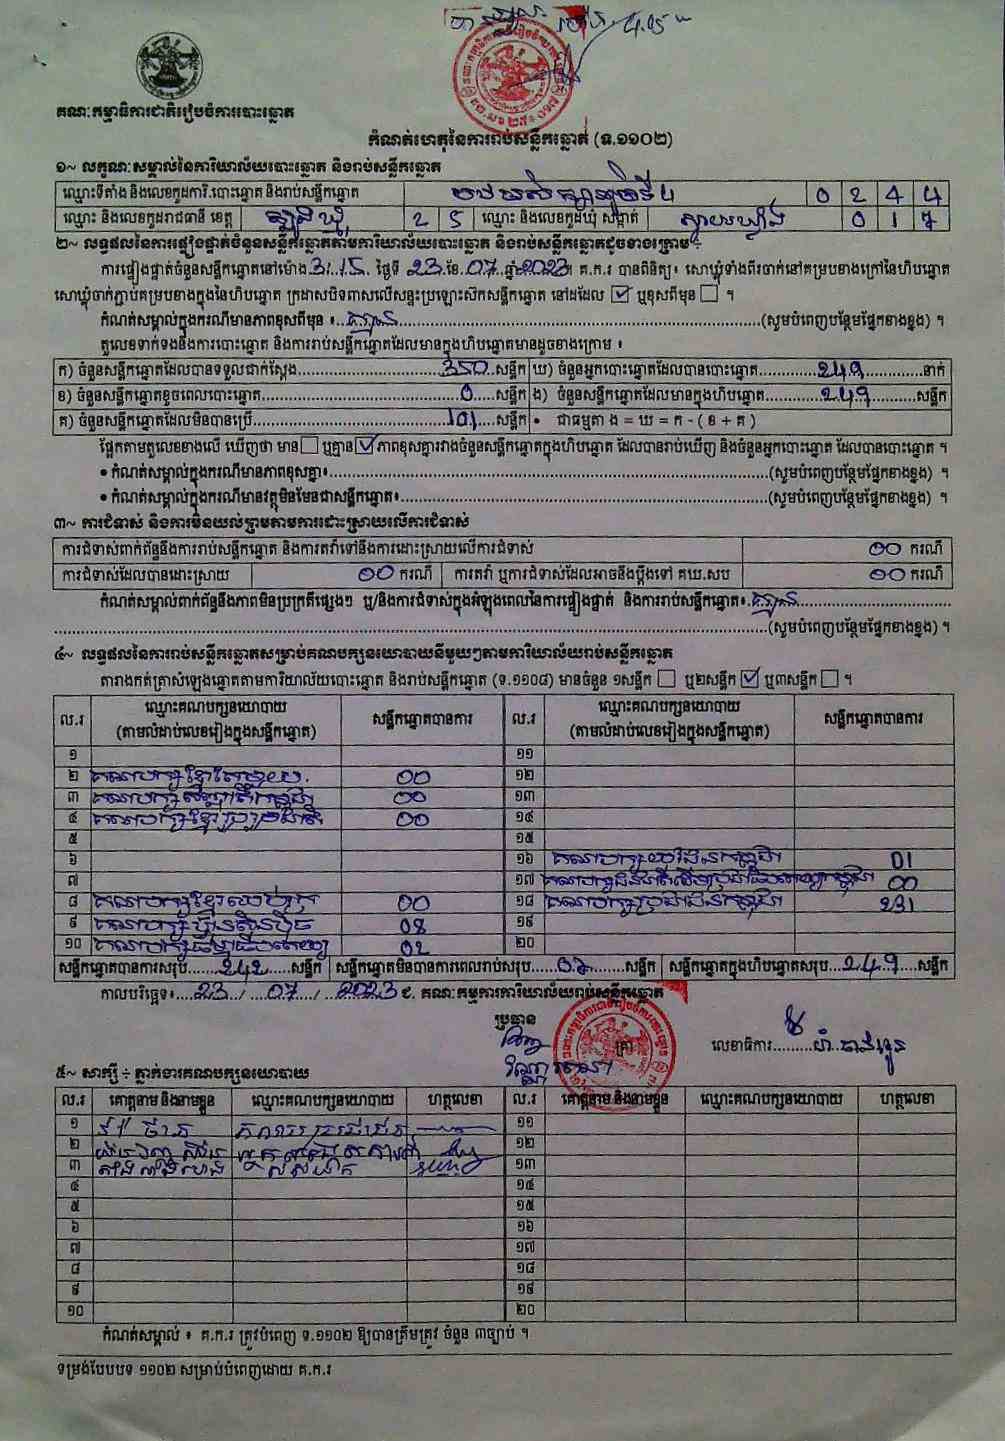 គណៈកម្មាធិការជាតិរៀបចំការបោះឆ្នោត
កំណត់ហេតុនៃការរាប់សន្លឹកឆ្នោត (ទ.១១០២)
១~ លក្ខណៈសម្គាល់នៃការិយាល័យបោះឆ្នោត និងរាប់សន្លឹកឆ្នោត
ឈ្មោះទីតាំង និងលេខកូដការិ.បោះឆ្នោត និងរាប់សន្លឹកឆ្នោត 0 2 4 4
ឈ្មោះ និងលេខកូដរាជធានី ខេត្ត ត្បូងឃ្មុំ 2 5 ឈ្មោះ និងលេខកូដឃុំ សង្កាត់ 0 1 7
២~ លទ្ធផលនៃការផ្ទៀងផ្ទាត់ចំនួនសន្លឹកឆ្នោតតាមការិយាល័យបោះឆ្នោត និងរាប់សន្លឹកឆ្នោតដូចខាងក្រោម ÷
ការផ្ទៀងផ្ទាត់ចំនួនសន្លឹកឆ្នោតនៅម៉ោង 3:15 ថ្ងៃទី 23 ខែ 07 ឆ្នាំ 2023។ គ.ក.រ បានពិនិត្យ៖ សោឃ្លុំទាំងពីរចាក់នៅគម្របខាងក្រៅនៃហិបឆ្នោត
សោឃ្លុំចាក់ភ្ជាប់គម្របខាងក្នុងនៃហិបឆ្នោត ក្រដាសបិទពាសលើសន្ទះប្រឡោះស៊កសន្លឹកឆ្នោត នៅដដែល ☑ ឬខុសពីមុន ☐ ។
កំណត់សម្គាល់ក្នុងករណីមានភាពខុសពីមុន ៖ គ្មាន (សូមបំពេញបន្ថែមផ្នែកខាងខ្នង) ។
តួលេខទាក់ទងនឹងការបោះឆ្នោត និងការរាប់សន្លឹកឆ្នោតដែលមានក្នុងហិបឆ្នោតមានដូចខាងក្រោម ៖
ក) ចំនួនសន្លឹកឆ្នោតដែលបានទទួលជាក់ស្តែង 350 សន្លឹក ឃ) ចំនួនអ្នកបោះឆ្នោតដែលបានបោះឆ្នោត 249 នាក់
ខ) ចំនួនសន្លឹកឆ្នោតខូចពេលបោះឆ្នោត 0 សន្លឹក ង) ចំនួនសន្លឹកឆ្នោតដែលមានក្នុងហិបឆ្នោត 249 សន្លឹក
គ) ចំនួនសន្លឹកឆ្នោតដែលមិនបានប្រើ 101 សន្លឹក • ជាធម្មតា ង = ឃ = ក - ( ខ + គ )
ផ្អែកតាមតួលេខខាងលើ ឃើញថា មាន ☐ ឬគ្មាន ☑ ភាពខុសគ្នារវាងចំនួនសន្លឹកឆ្នោតក្នុងហិបឆ្នោត ដែលបានរាប់ឃើញ និងចំនួនអ្នកបោះឆ្នោត ដែលបានបោះឆ្នោត ។
• កំណត់សម្គាល់ក្នុងករណីមានភាពខុសគ្នា៖ (សូមបំពេញបន្ថែមផ្នែកខាងខ្នង) ។
• កំណត់សម្គាល់ក្នុងករណីមានវត្ថុមិនមែនជាសន្លឹកឆ្នោត៖ (សូមបំពេញបន្ថែមផ្នែកខាងខ្នង) ។
៣~ ការជំទាស់ និងការមិនយល់ព្រមតាមការដោះស្រាយលើការជំទាស់
ការជំទាស់ពាក់ព័ន្ធនឹងការរាប់សន្លឹកឆ្នោត និងការតវ៉ាទៅនឹងការដោះស្រាយលើការជំទាស់ 00 ករណី
ការជំទាស់ដែលបានដោះស្រាយ 00 ករណី ការតវ៉ា ឬការជំទាស់ដែលអាចនឹងប្តឹងទៅ គឃ.សប 00 ករណី
កំណត់សម្គាល់ពាក់ព័ន្ធនឹងភាពមិនប្រក្រតីផ្សេងៗ ឬ/និងការជំទាស់ក្នុងអំឡុងពេលនៃការផ្ទៀងផ្ទាត់ និងការរាប់សន្លឹកឆ្នោត៖ គ្មាន
(សូមបំពេញបន្ថែមផ្នែកខាងខ្នង) ។
៤~ លទ្ធផលនៃការរាប់សន្លឹកឆ្នោតសម្រាប់គណបក្សនយោបាយនីមួយៗតាមការិយាល័យរាប់សន្លឹកឆ្នោត
តារាងកត់ត្រាសំឡេងឆ្នោតតាមការិយាល័យបោះឆ្នោត និងរាប់សន្លឹកឆ្នោត (ទ.១១០៨) មានចំនួន ១សន្លឹក ☐ ឬ២សន្លឹក ☑ ឬ៣សន្លឹក ☐ ។
ល.រ ឈ្មោះគណបក្សនយោបាយ (តាមលំដាប់លេខរៀងក្នុងសន្លឹកឆ្នោត) សន្លឹកឆ្នោតបានការ ល.រ ឈ្មោះគណបក្សនយោបាយ (តាមលំដាប់លេខរៀងក្នុងសន្លឹកឆ្នោត) សន្លឹកឆ្នោតបានការ
១ ១១
២ 00 ១២
៣ 00 ១៣
៤ 00 ១៤
៥ ១៥
៦ ១៦ 01
៧ ១៧ 00
៨ 00 ១៨ គណបក្សប្រជាជនកម្ពុជា 231
៩ 08 ១៩
១០ គណបក្សធម្មាធិបតេយ្យ 02 ២០
សន្លឹកឆ្នោតបានការសរុប 242 សន្លឹក សន្លឹកឆ្នោតមិនបានការពេលរាប់សរុប 07 សន្លឹក សន្លឹកឆ្នោតក្នុងហិបឆ្នោតសរុប 249 សន្លឹក
កាលបរិច្ឆេទ៖ 23 / 07 / 2023 ៩. គណៈកម្មការការិយាល័យរាប់សន្លឹកឆ្នោត
ប្រធាន
លេខាធិការ
៥~ សាក្សី ÷ ភ្នាក់ងារគណបក្សនយោបាយ
ល.រ គោត្តនាម និងនាមខ្លួន ឈ្មោះគណបក្សនយោបាយ ហត្ថលេខា ល.រ គោត្តនាម និងនាមខ្លួន ឈ្មោះគណបក្សនយោបាយ ហត្ថលេខា
១ ១១
២ ១២
៣ ១៣
៤ ១៤
៥ ១៥
៦ ១៦
៧ ១៧
៨ ១៨
៩ ១៩
១០ ២០
កំណត់សម្គាល់ ៖ គ.ក.រ ត្រូវបំពេញ ទ.១១០២ ឱ្យបានត្រឹមត្រូវ ចំនួន ៣ច្បាប់ ។
ទម្រង់បែបបទ ១១០២ សម្រាប់បំពេញដោយ គ.ក.រ